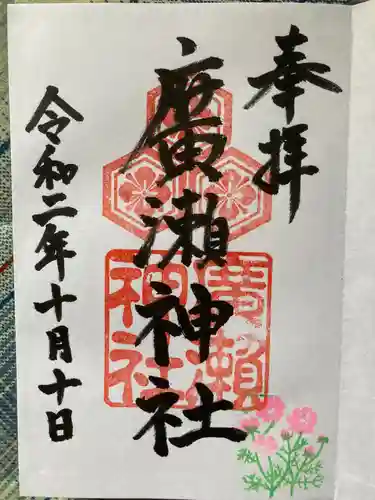 奉拝
廣瀬神社
廣瀬
神社
令和二年十月十日